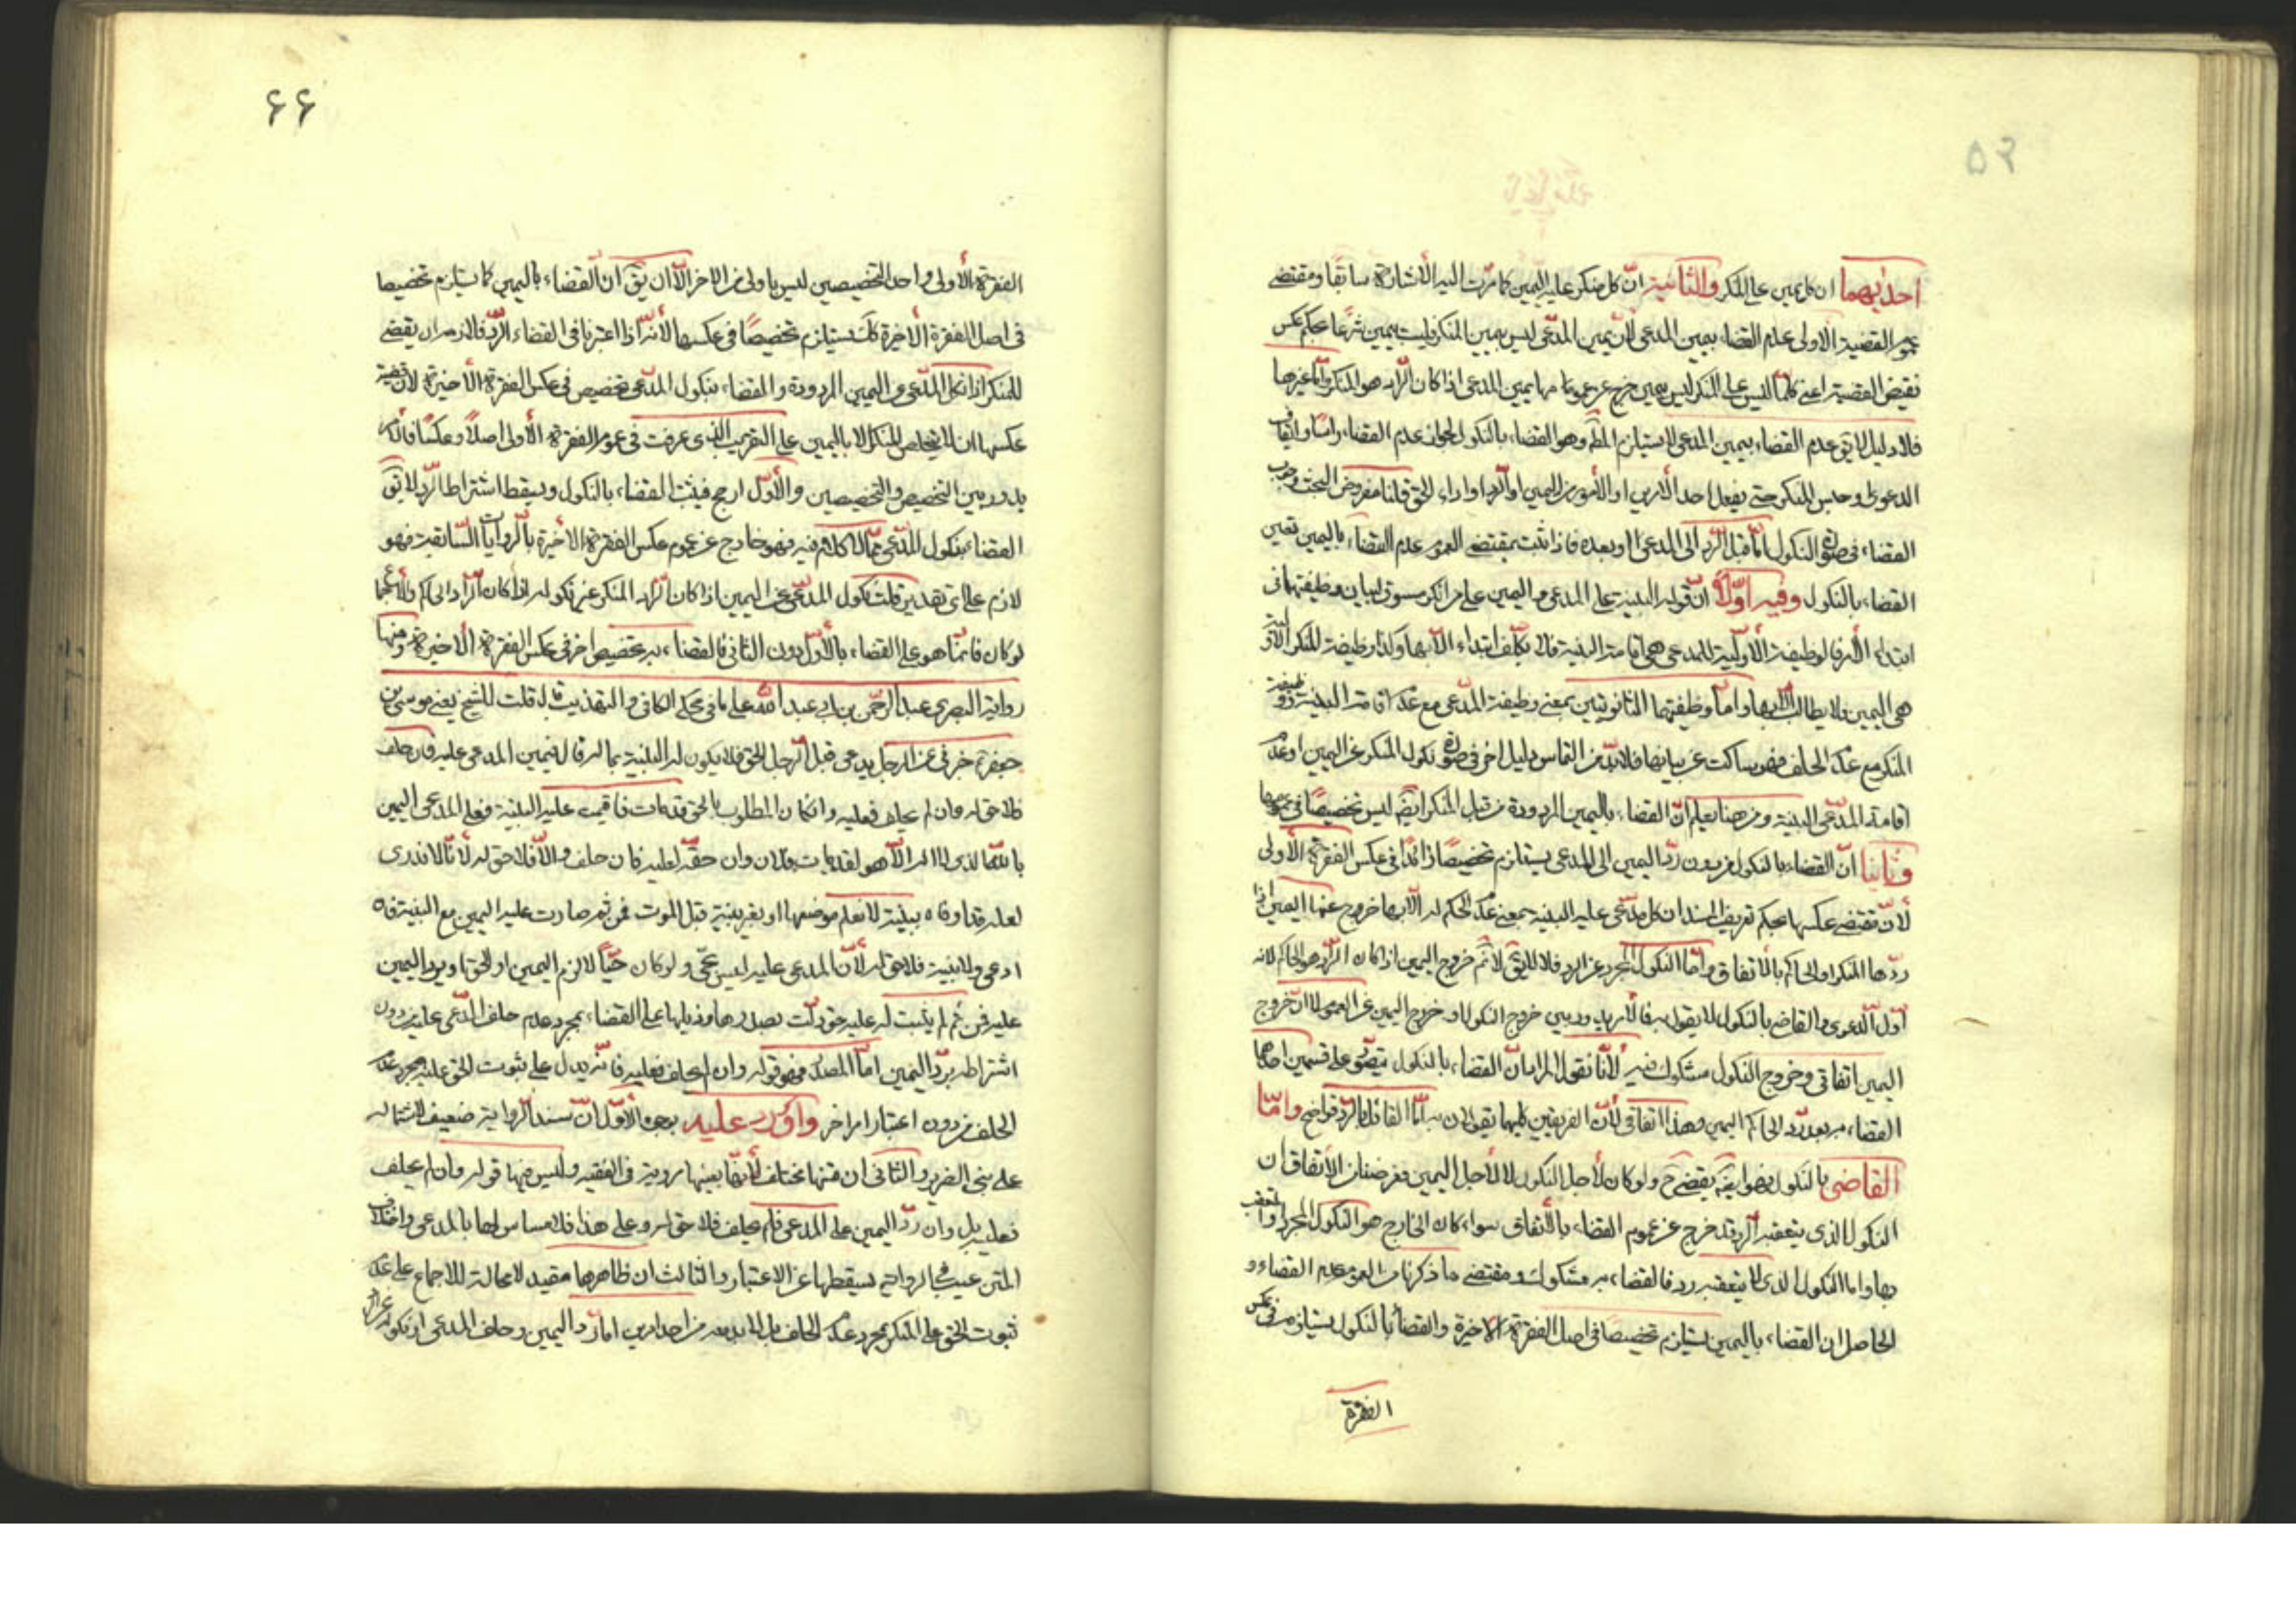 ۵۲
احديهما ان كل يمين على المنكر والثانية ان كل منكر عليه اليمين كما مرت اليه الاشارة سابقا ومقتضى
عموم القضية الاولى عدم القضاء بيمين المدعى لان يمين المدعى ليس يمين المنكر فليست بيمين شرعا بحكم عكس
نقيض القضية اعنى كلما ليس على المنكر ليس بيمين خرج عن عمومها يمين المدعى اذا كان الراد هو المنكر واما غيرها
فلا دليل لا يق عدم القضاء بيمين المدعى لا يستلزم المط وهو القضاء بالنكول لجواز عدم القضاء راسا وايقاف
الدعوى او حبس المنكر حتى يفعل احد الامرين او الأمور من اليمين او الرد او اداء الحق قلنا مفروض البحث وجوب
القضاء فى صورة النكول اما قبل الرد الى المدعى او بعده فاذا ثبت بمقتضى العموم عدم القضاء باليمين تعين
القضاء بالنكول وفيه اولا ان قوله البينة على المدعى و اليمين على من انكر مسوق لبيان وظيفتهما فى
ابتداء الأمر فالوظيفة الأولية للمدعى هى اقامة البينة فلا يكلف ابتداء الا بها وكذا وظيفة المنكر الاولية
هى اليمين فلا يطالب الا بها واما وظيفتهما الثانويتين بمعنى وظيفة المدعى مع عدم اقامة البينة ووظيفة
المنكر مع عدم الحلف فهو ساكت عن بيانها فلا بد من التماس دليل اخر فى صورة نكول المنكر عن اليمين او عدم
اقامة المدعى البينة ومن هنا يعلم ان القضاء باليمين المردودة من قبل المنكر ايضا ليس تخصيصا فى عمومها
وثانيا ان القضاء بالنكول من دون رد اليمين الى المدعى يستلزم تخصيصا زائدا فى عكس الفقرة الأولى
لأن مقتضى عكسها بحكم تعريف المسند ان كل مدعى عليه البينة بمعنى عدم الحكم له الا بها خروج عنها اليمين اذا
ردها المنكر او الحاكم بالاتفاق واما النكول المجرد عن الرد فلا لا يق لا نم خروج اليمين اذا كان الراد هو الحاكم لانه
اول الدعوى والقاضى بالنكول لا يقول به فالأمر يدور بين خروج النكول او خروج اليمين عن العموم لا ان خروج
اليمين اتفاقى وخروج النكول مشكوك فيه لأنا نقول المراد ان القضاء بالنكول يتصور على قسمين احدهما
القضاء به بعد رد الحاكم اليمين وهذا اتفاقى لأن الفريقين كليهما يقولان به اما القائل بالرد فواضح واما
القاضى بالنكول فهو ايضا يقضى ح ولو كان لأجل النكول لا لأجل اليمين وغرضنا الاتفاق ان
النكول الذى يتعقبه الرد قد خرج عن عموم القضاء بالأتفاق سواء كان الخارج هو النكول المجرد او المتعقب
بها واما النكول الذى لا يتعقبه رد فالقضاء به مشكوك ومقتضى ما ذكرنا من العموم عدم القضاء و
الحاصل ان القضاء باليمين يستلزم تخصيصا فى اصل الفقرة الاخيرة والقضاء بالنكول يستلزمه فى عكس
الفقرة
۶۶
الفقرة الأولى واحد التخصيصين ليس باولى من الاخر الا ان يق ان القضاء باليمين كما يستلزم تخصيصا
فى اصل الفقرة الأخيرة كك يستلزم تخصيصا فى عكسها لأنه اذا اعتبرنا فى القضاء الرد فاللازم ان يقضى
للمنكر اذا نكل المدعى عن اليمين المردودة والقضاء بنكول المدعى تخصيص فى عكس الفقرة الأخيرة لأن قضية
عكسها ان لا يتخلص المنكر الا باليمين على التقريب الذى عرفت فى عموم الفقرة الأولى اصلا وعكسا فالأمر
يدور بين التخصيص والتخصيصين والأول ارجح فيثبت القضاء بالنكول ويسقط اشتراط الرد لا يق
القضاء بنكول المدعى مما لا كلام فيه فهو خارج عن عموم عكس الفقرة الاخيرة بالروايات السابقة فهو
لازم على اى تقدير قلت نكول المدعى عن اليمين اذا كان الراد المنكر غير نكوله اذا كان الراد الحاكم والأجماع
لو كان فانما هو على القضاء بالأول دون الثانى فالقضاء به تخصيص اخر فى عكس الفقرة الاخيرة ومنها
رواية البصرى عبد الرحمن بن ابى عبد الله على ما فى محكى الكافى والتهذيب قال قلت للشيخ يعنى موسى بن
جعفر خبرنى عن الرجل يدعى قبل الرجل الحق فلا يكون له البينة بماله قال فيمين المدعى عليه فان حلف
فلا حق له وان لم يحلف فعليه وان كان المطلوب بالحق قد مات فاقيمت عليه البينة فعلى المدعى اليمين
بالله الذى لا اله الا هو لقد مات فلان وان حقه لعليه فان حلف والا فلا حق له لأنا لا ندرى
لعله قد اوفاه ببينة لا نعلم موضعها او بغير بينة قبل الموت فمن ثم صارت عليه اليمين مع البينة فان
ادعى ولا بينة فلا حق له لأن المدعى عليه ليس بحى ولو كان حيا لالزم اليمين او الحق او يرد اليمين
عليه فمن ثم لم يثبت له عليه حق دلت بصدرها وذيلها على القضاء بمجرد عدم حلف المدعى عليه من دون
اشتراطه برد اليمين اما الصدر فهو قوله وان لم يحلف فعليه فانه يدل على ثبوت الحق عليه بمجرد عدم
الحلف من دون اعتبار امر اخر واورد عليه بوجوه الأول ان سند الرواية ضعيف لاشتماله
على يس الضرير والثانى ان متنها مختلف لأنها بعينها مروية فى الفقيه وليس فيها قوله وان لم يحلف
فعليه بل وان رد اليمين على المدعى فلم يحلف فلا حق له وعلى هذا فلا مساس لها بالمدعى واختلاف
المتن عيب فى الرواية يسقطها عن الاعتبار والثالث ان ظاهرها مقيد لا محالة للاجماع على عدم
ثبوت الحق على المنكر بمجرد عدم الحلف بل لا بد معه من احد امرين اما رد اليمين وحلف المدعى او نكوله